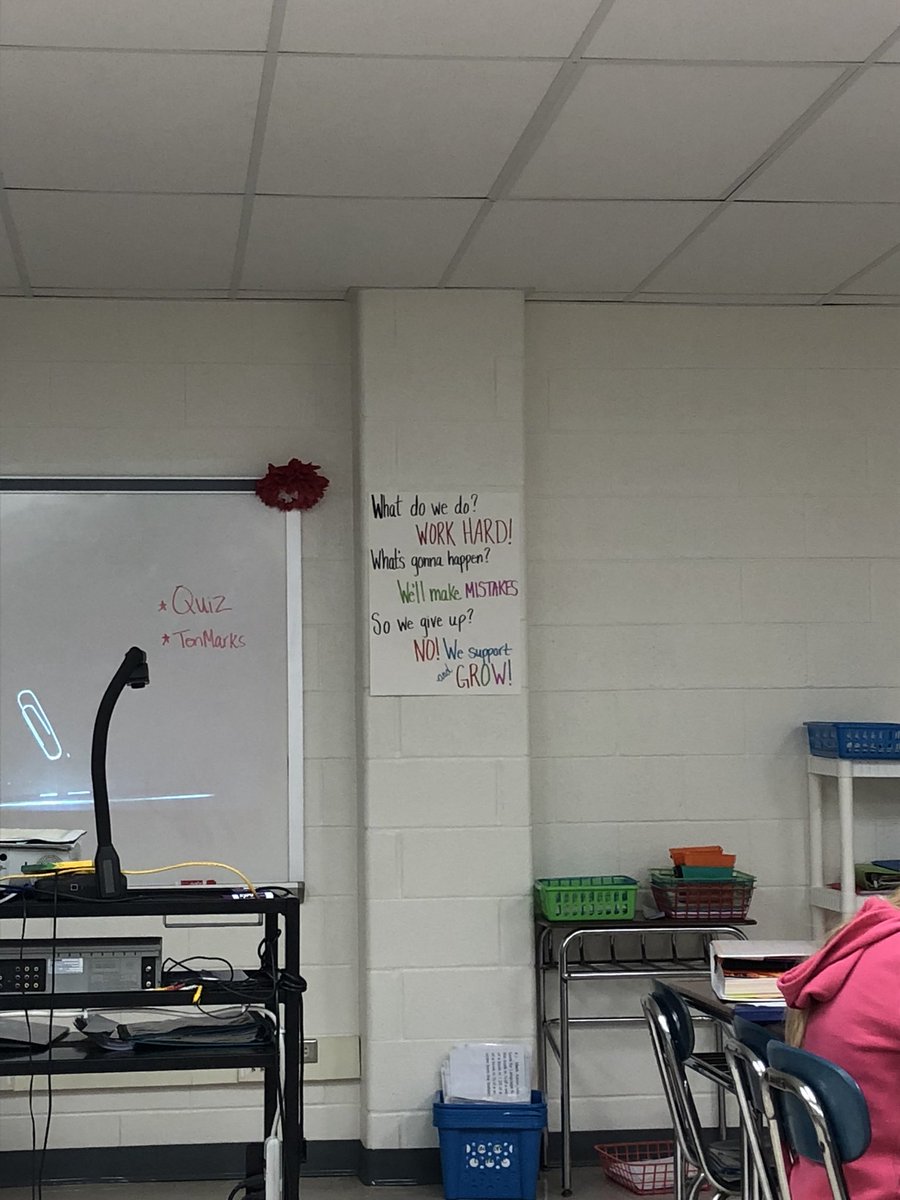 * Quiz
* TenMarks
What do we do?
WORK HARD!
What's gonna happen?
We'll make MISTAKES
So we give up?
NO! We support
and GROW!